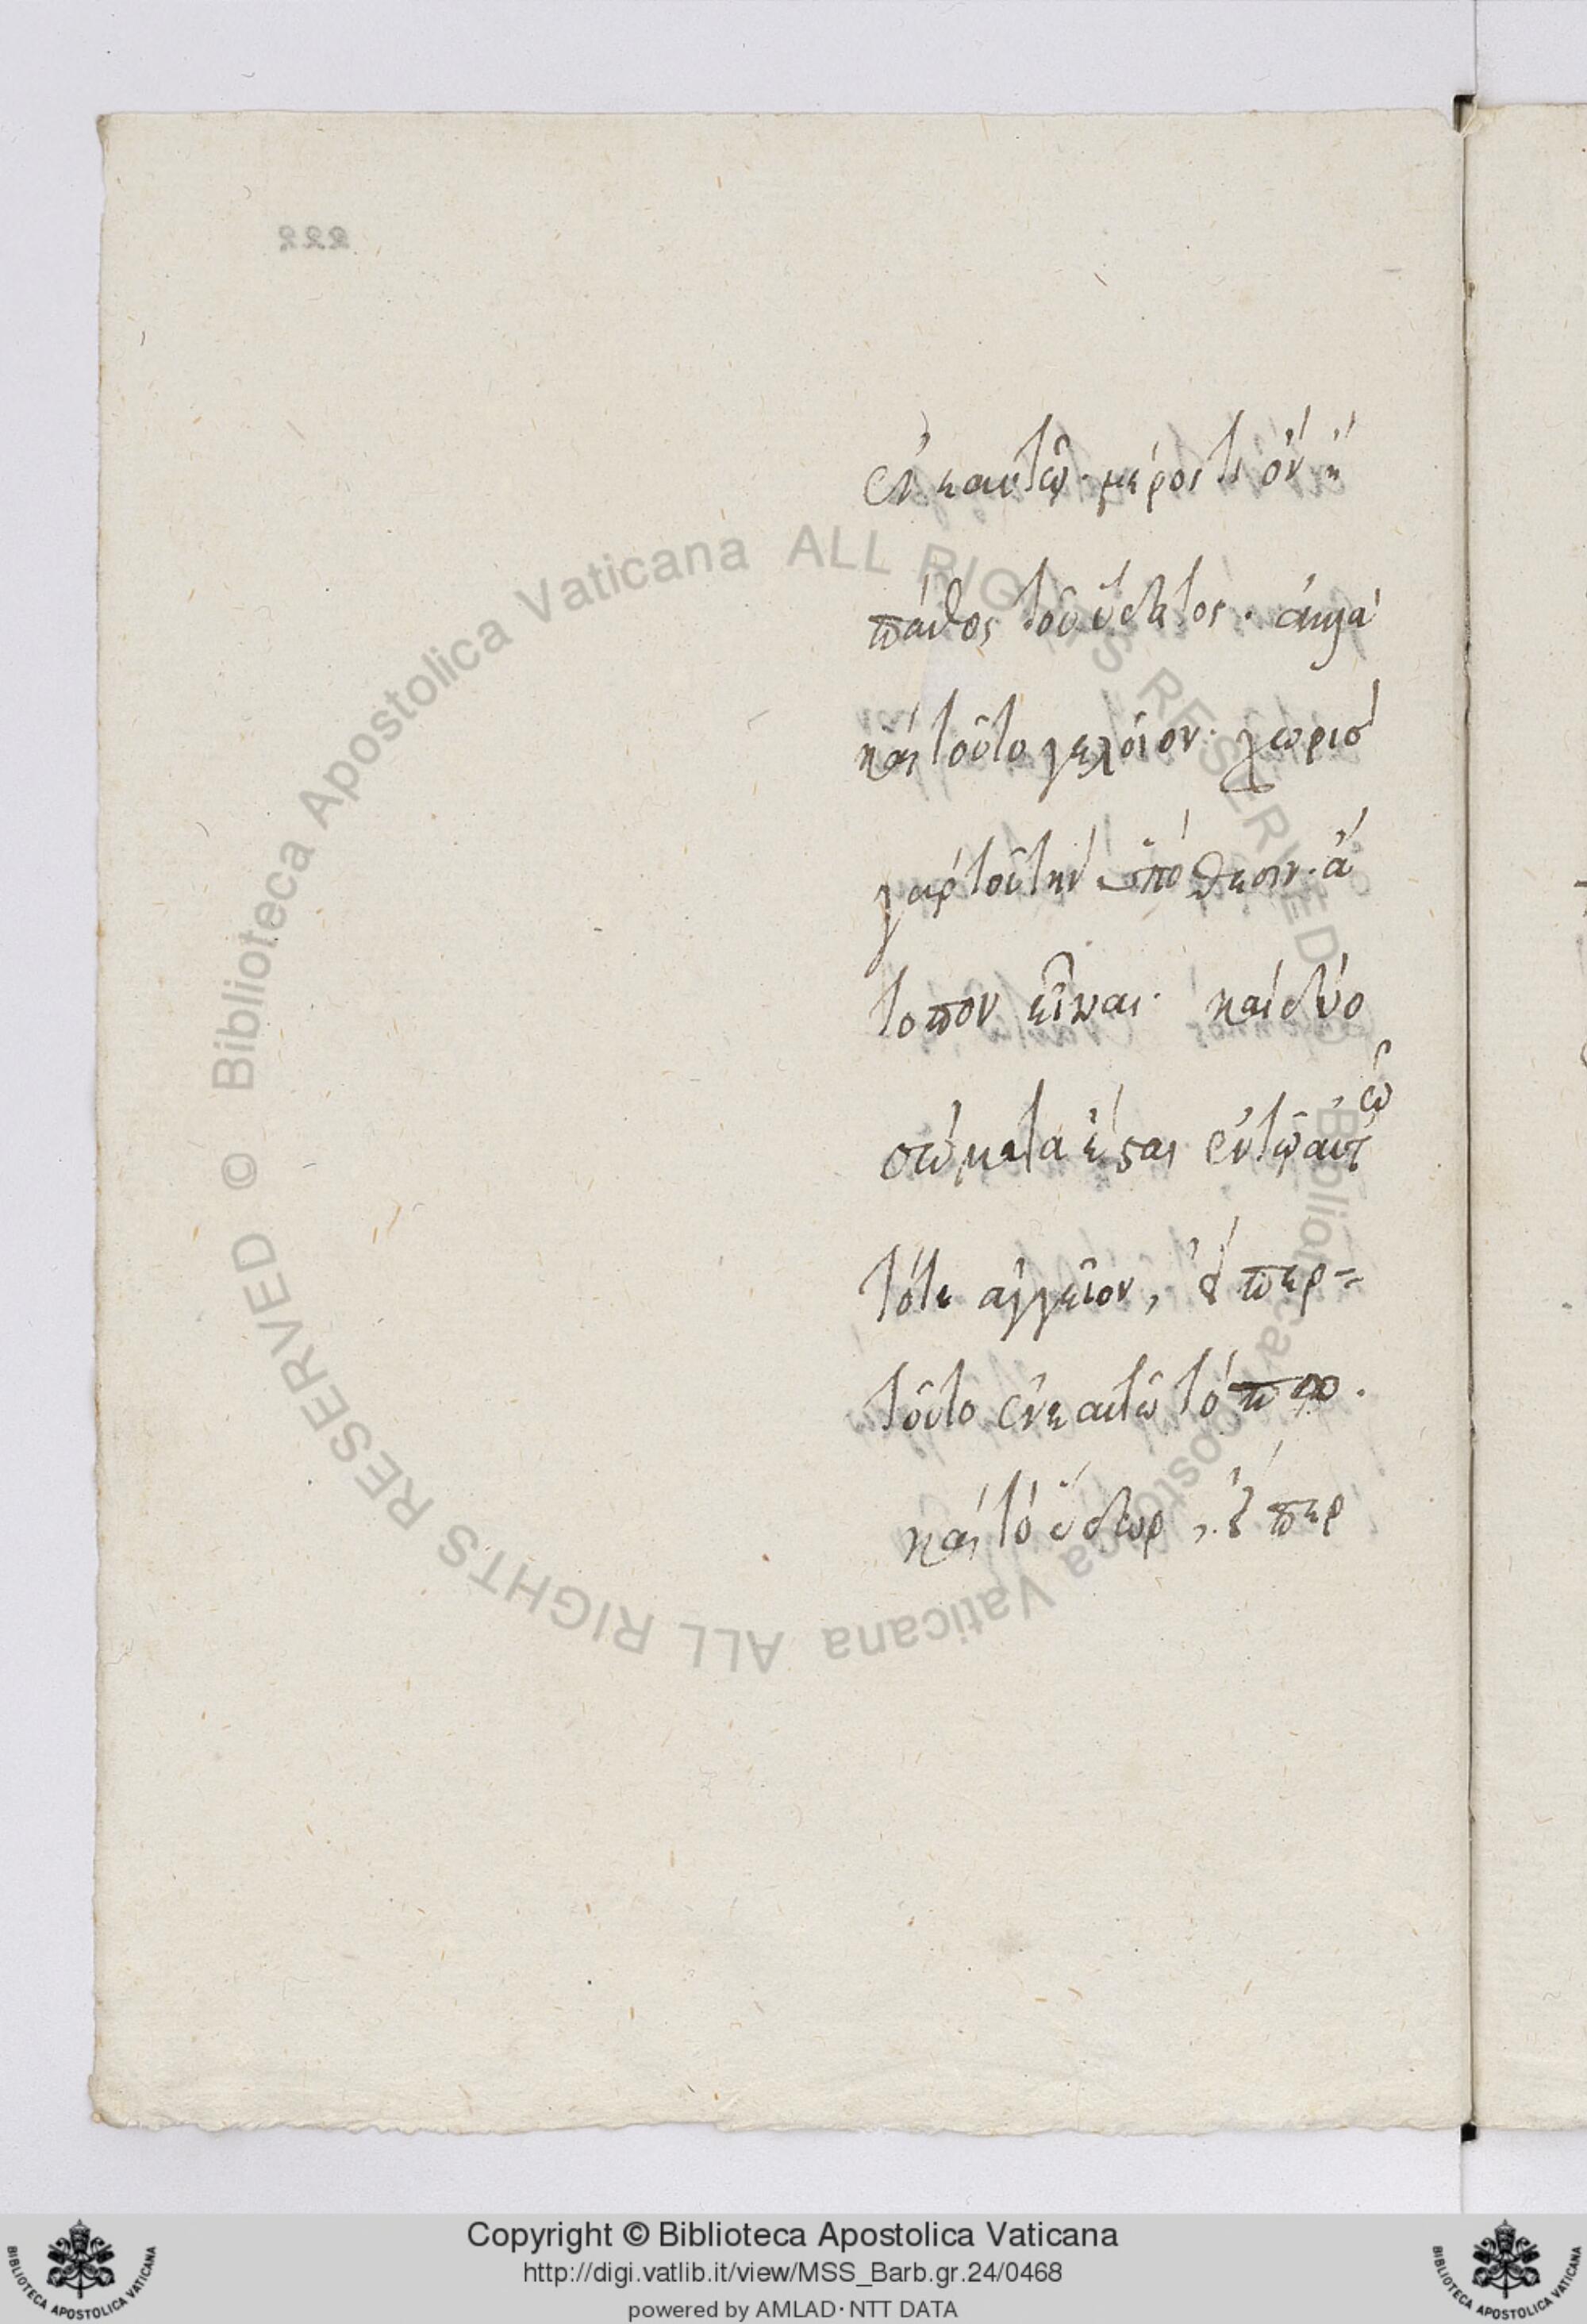 222
ἐν ἑαυτῷ. μέρος τι ὂν ἢ
πάθος τοῦ ὕδατος. ἀλλὰ
καὶ τοῦτο γελοῖον. χωρὶς
γὰρ τοῦ τὴν ὑπόθεσιν. ἄ
τοπον εἶναι. καὶ δύο
σώματα ἔσται ἐν τῷ αὐτῷ
τότε ἀγγεῖον, ὅπερ
τοῦτο ἐν ἑαυτῶ τόπῳ.
καὶ τὸ ὕδωρ, ὅπερ
© Biblioteca Apostolica Vaticana ALL RIGHTS RESERVED
© Biblioteca Apostolica Vaticana ALL RIGHTS RESERVED
Copyright © Biblioteca Apostolica Vaticana
http://digi.vatlib.it/view/MSS_Barb.gr.24/0468
powered by AMLAD·NTT DATA
BIBLIOTECA APOSTOLICA VATICANA
BIBLIOTECA APOSTOLICA VATICANA